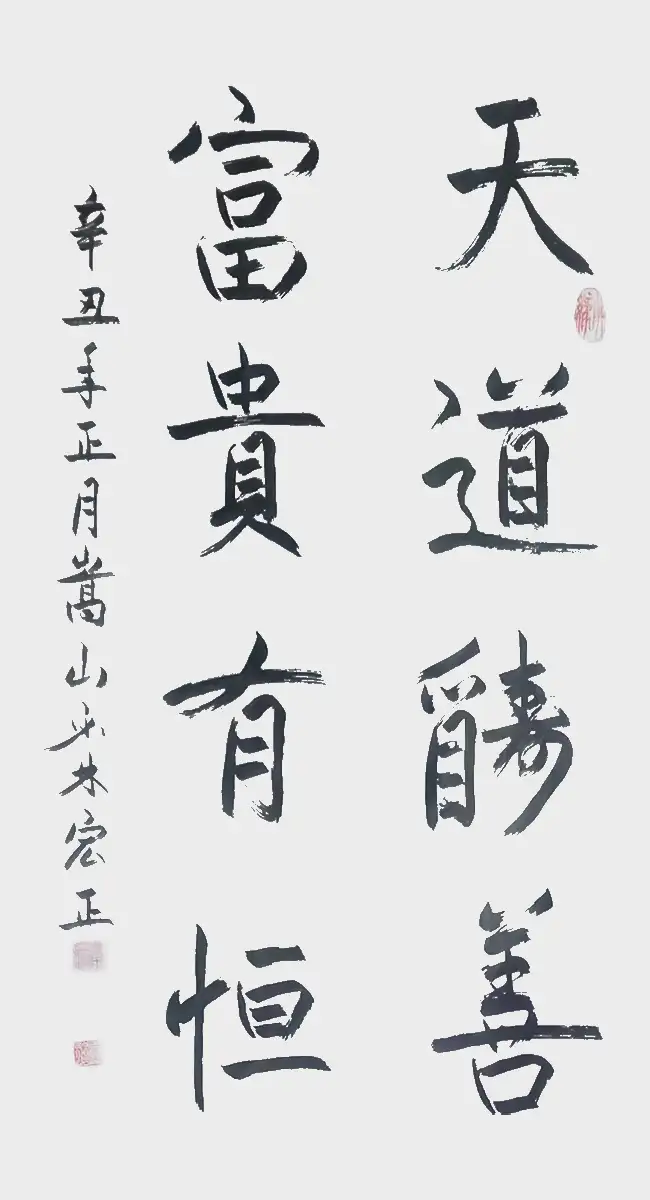 天道酬善
富貴有恒
辛丑年正月嵩山少林宏正